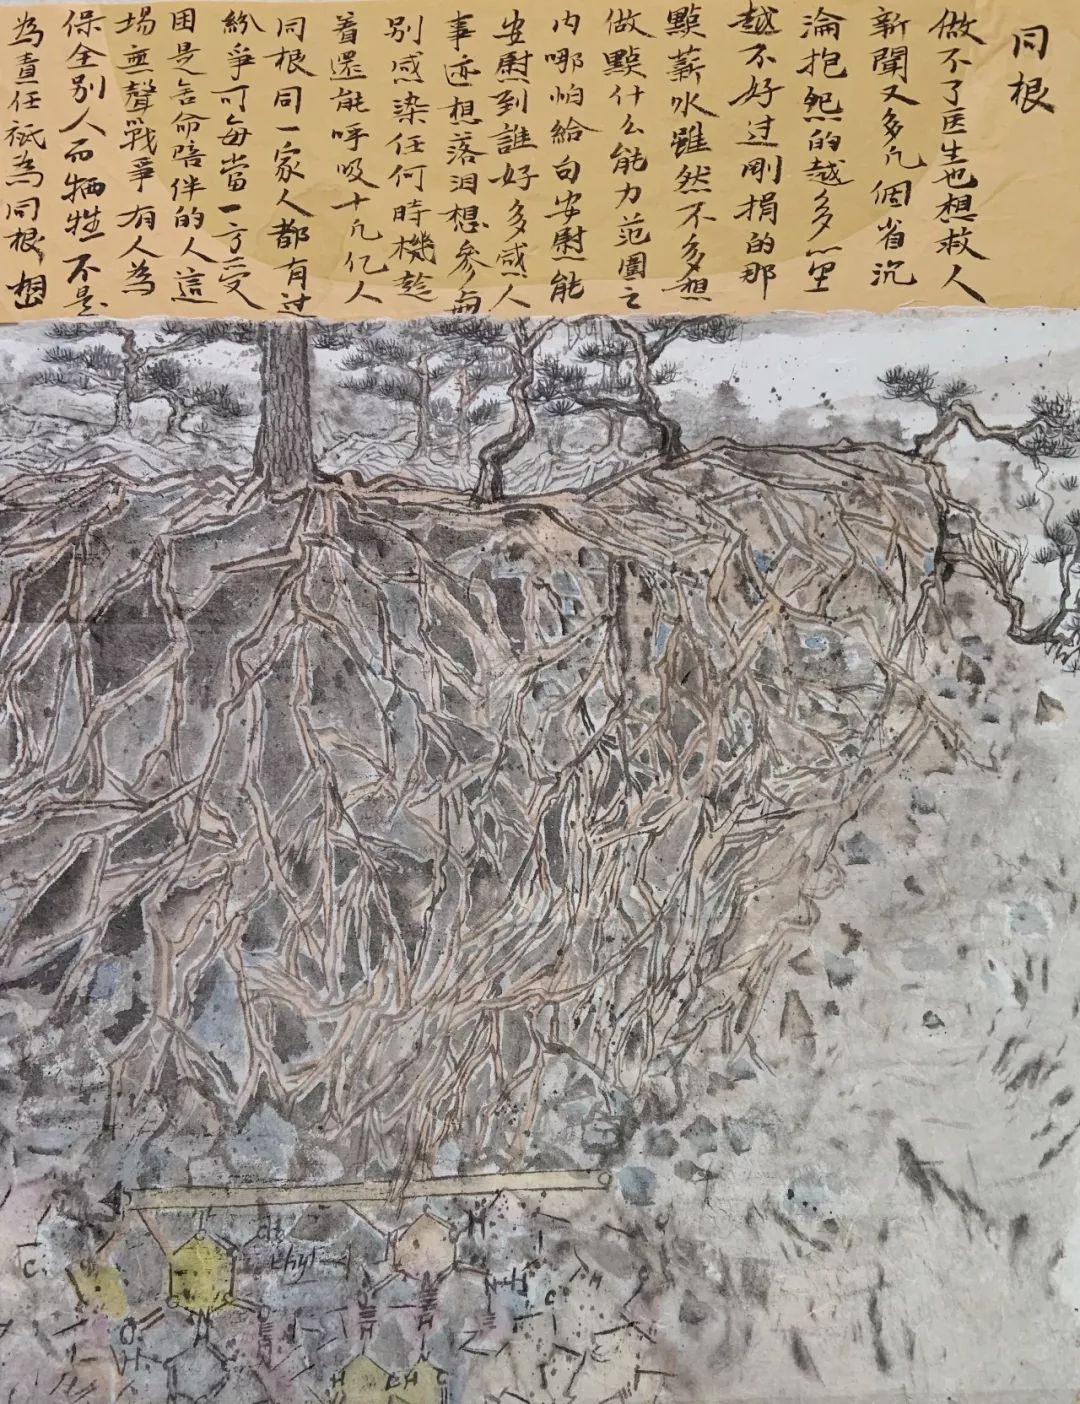 同根
做不了医生也想救人
新聞又多几個省沉
淪抱怨的越多坚
越不好过剛捐的那
點薪水雖然不多想
做點什么能力范圍之
内哪怕給句安慰能
安慰到誰好多感人
事迹想落泪想參与
别感染任何時機趁
着還能呼吸十几亿人
同根同一家人都有过
紛爭可每當一方受
困是舍命陪伴的人這
場無聲戰爭有人為
保全别人而牺牲不是
為責任祇為同根想
C
CH3
Ethyl
H
N
O
H
O
H
N
H
N
H
C
Z
H
CH
C